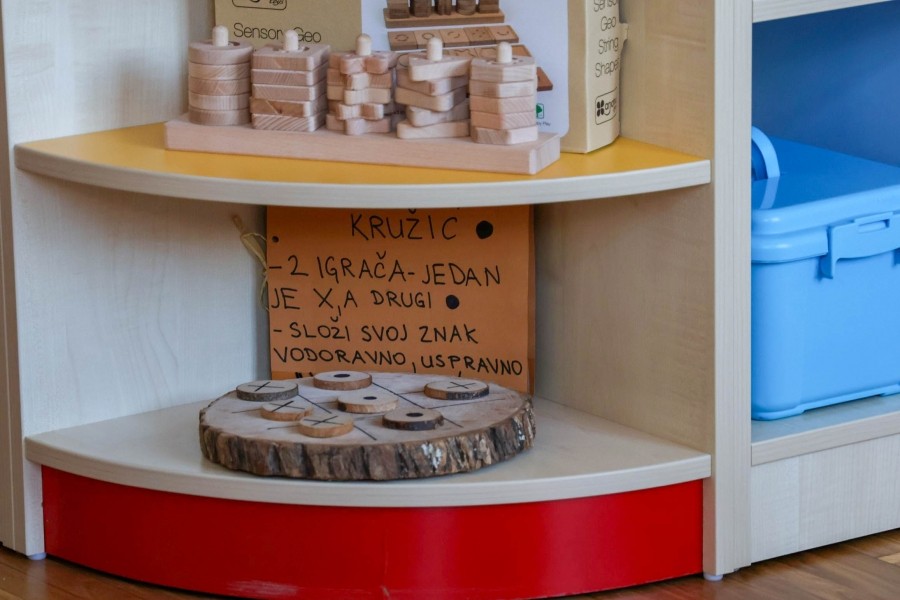 Sensor Geo
Senso
Geo
String
Shape
KRUŽIĆ ●
- 2 IGRAČA - JEDAN
JE X, A DRUGI ●
- SLOŽI SVOJ ZNAK
VODORAVNO, USPRAVNO